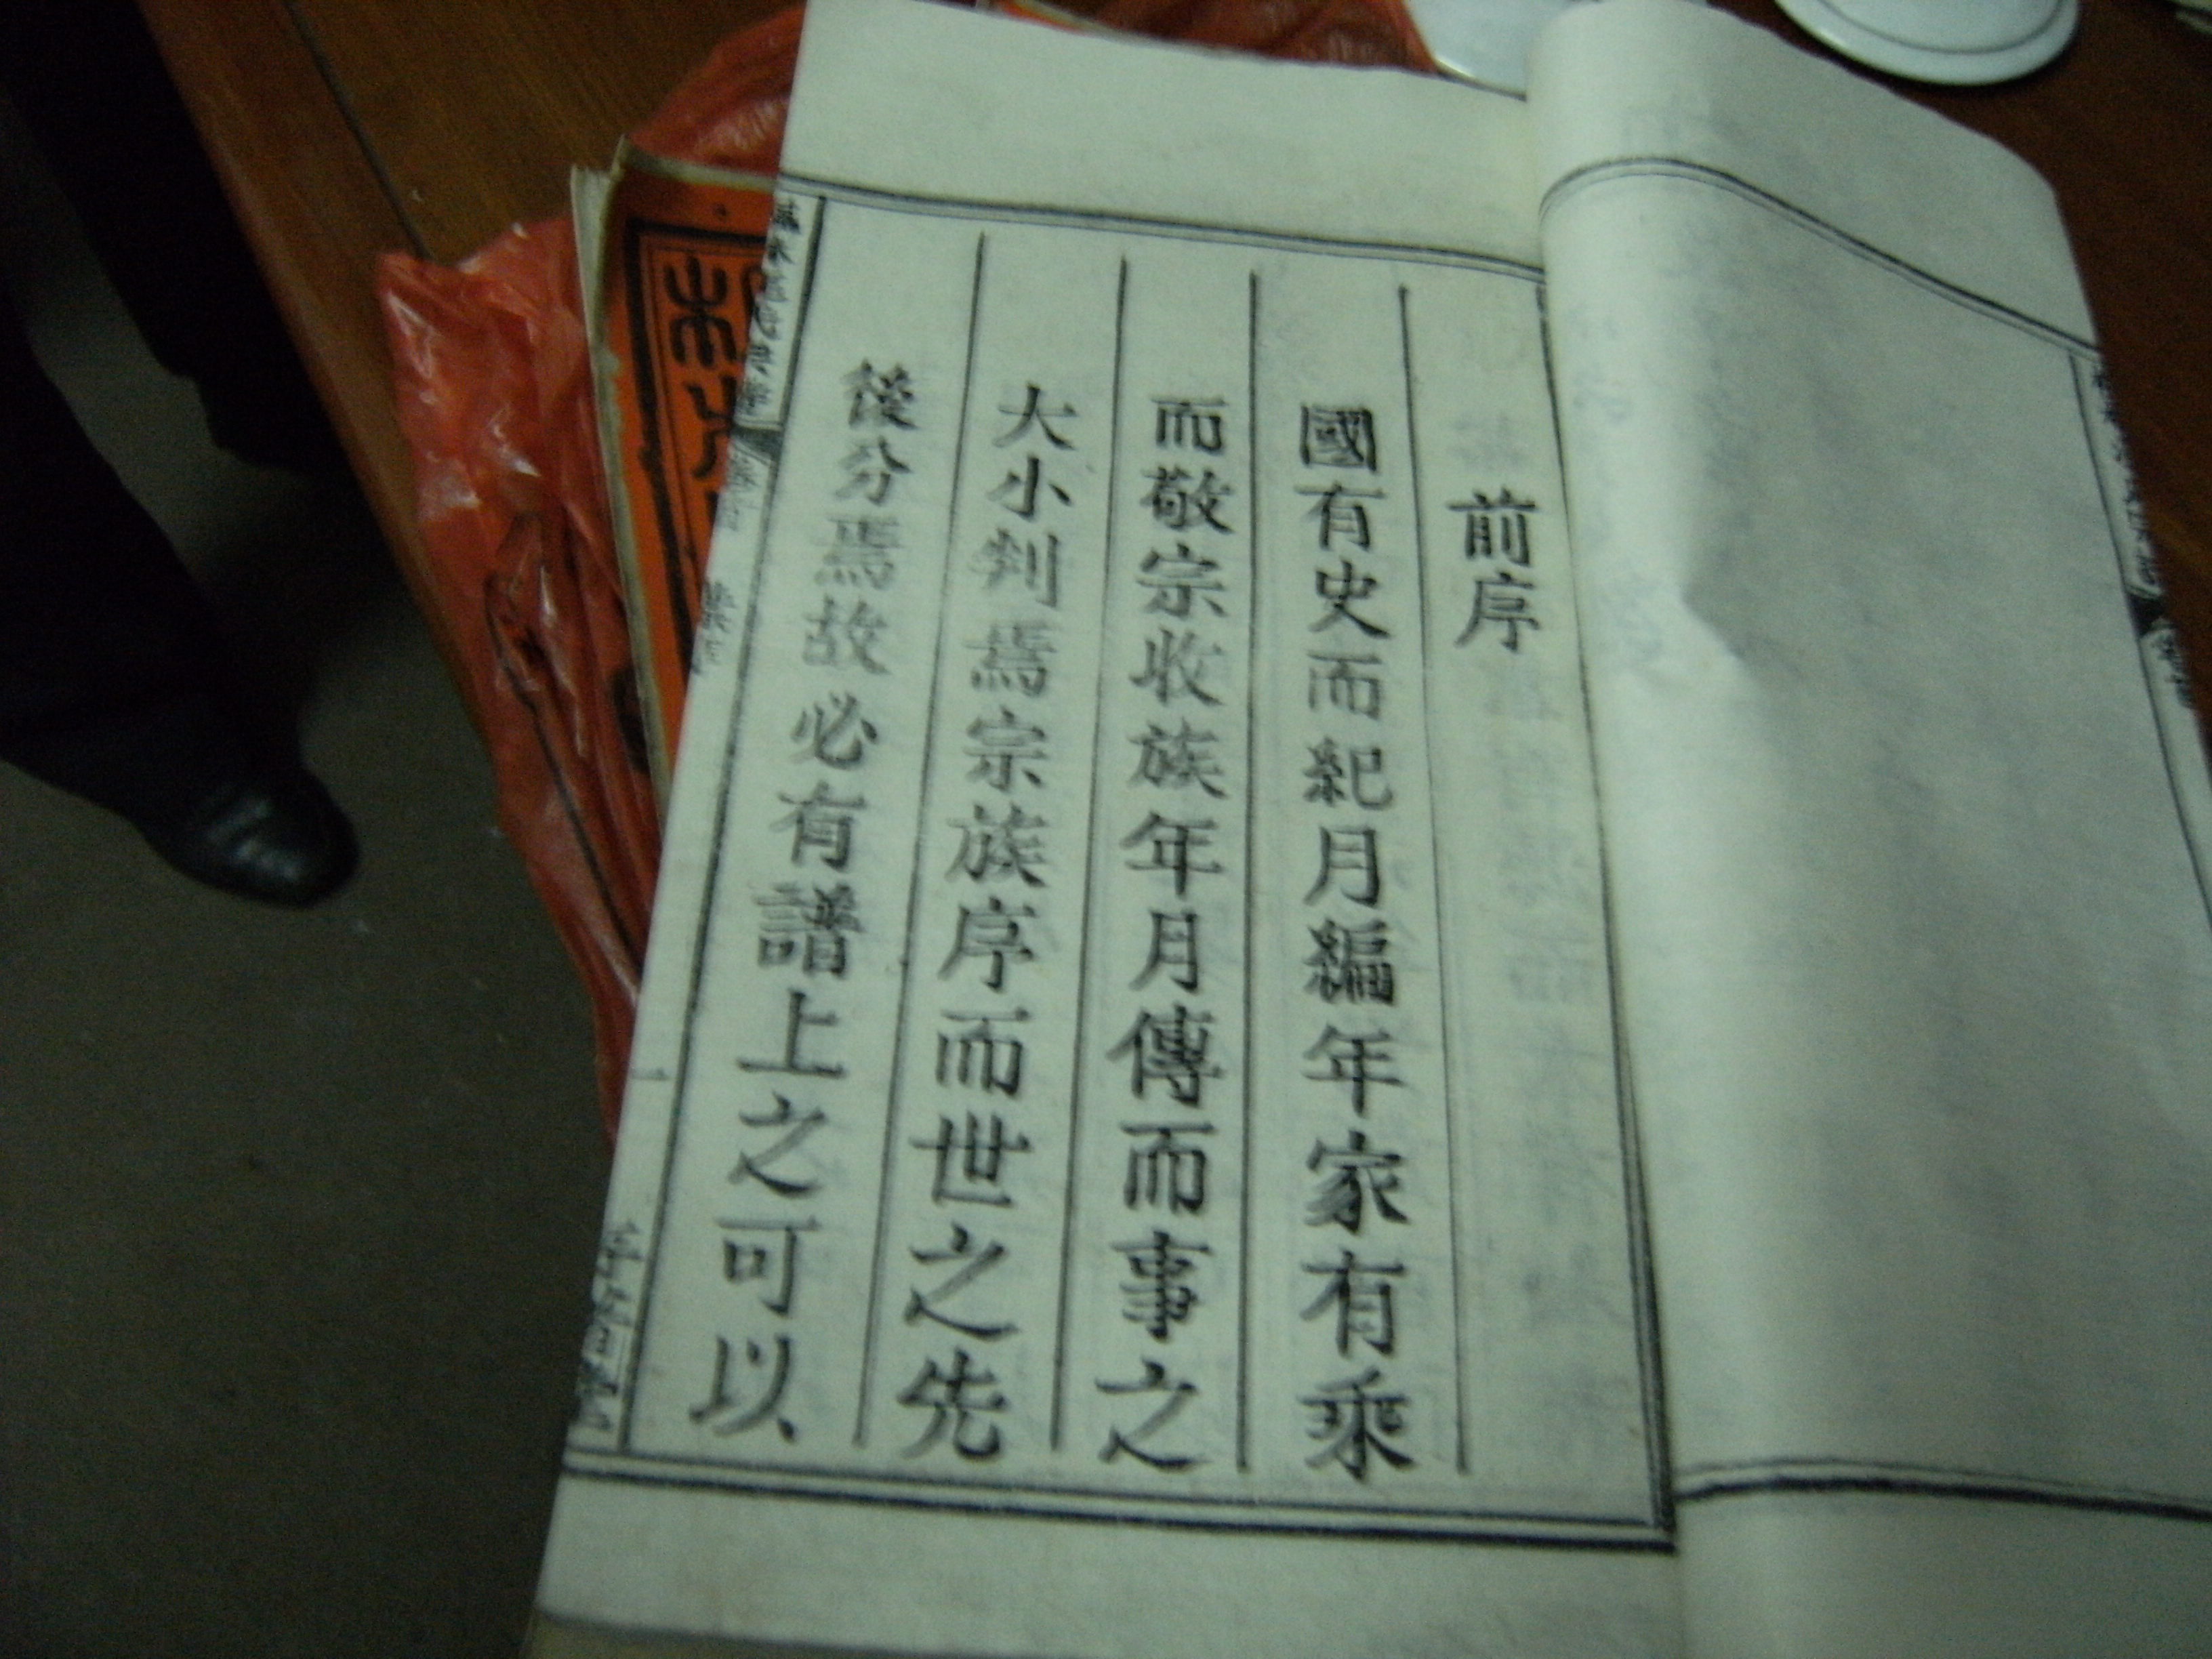 前序
國有史而紀月編年家有乘
而敬宗收族年月傳而事之
大小判焉宗族序而世之先
後分焉故必有譜上之可以
一